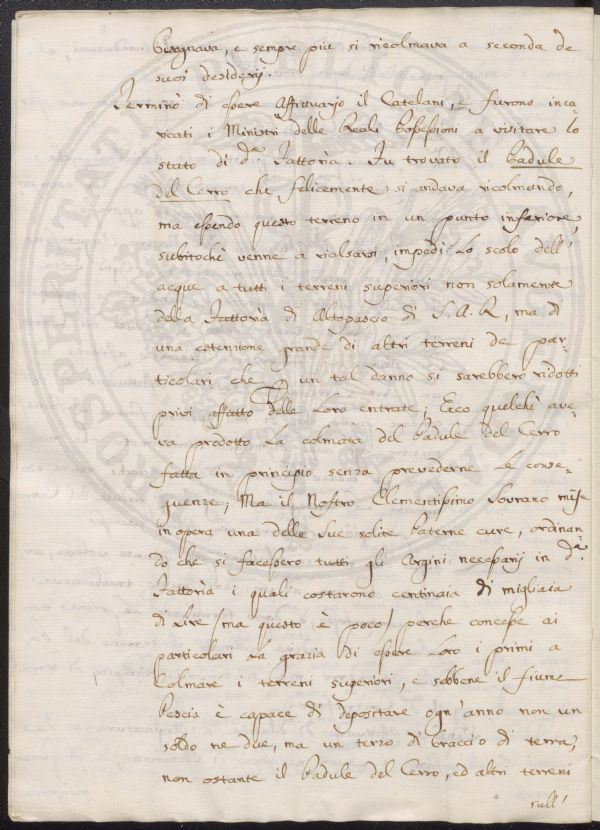 bisognava, e sempre piu si ricolmava a seconda de
suoi desiderij.
Terminò di essere Affittuario il Catelani, e furono inca-
ricati i Ministri delle Reali Possessioni a visitare lo
stato di d.ª Fattorìa. Fu trovato il Padule
del Cerro che felicemente si andava ricolmando,
ma essendo questo terreno in un punto inferiore,
subitochè venne a rialsarsi, impedì lo scolo dell'
acque a tutti i terreni superiori non solamente
della Fattorìa di Altopascio di S. A. R., ma di
una estensione grande di altri terreni de par-
ticolari che p un tal danno si sarebbero ridotti
privi affatto delle loro entrate; Ecco quelchè ave-
va prodotto la colmata del Padule del Cerro
fatta in principio senza prevederne le conse-
guenze; Ma il Nostro Clementissimo Sovrano mise
in opera una delle sue solite Paterne cure, ordinan-
do che si facessero tutti gli Argini necessarij in d.ª
Fattorìa i quali costarono centinaia di migliaia
di Lire /ma questo è poco/ perche concesse ai
particolari la grazia di essere loro i primi a
Colmare i terreni superiori, e sebbene il fiume
Pescia è capace di depositare ogn'anno non un
soldo ne due, ma un terzo di braccio di terra,
non ostante il Padule del Cerro, ed altri terreni
sull'